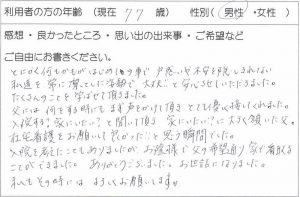 利用者の方の年齢（現在 77 歳） 性別（男性・女性）
感想・良かったところ・思い出の出来事・ご希望など
ご自由にお書きください。
とにかく何もかもがはじめての事で戸惑いや不安を隠しきれない
私達を常に凛とした活動で大丈夫と安心させていただきました。
たくさんのことを学ばせて頂きました。
父には何をする時にもまず声をかけて頂きとても優しく接してくれました。
入院する?家にいたい?と聞いて頂き 家にいたい?に大きく頷いた父。
在宅看護をお願いして良かった!!と思う瞬間でした。
入院を考えたこともありましたがお陰様で父の希望通り家で看取る
ことができました。ありがとうございました。お世話になりました。
私もその時にはよろしくお願いします。